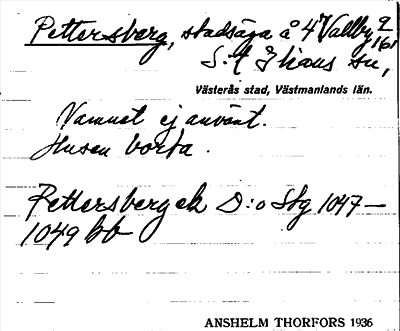 Pettersberg, stadsäga å 4 Vallby 2/161
S:t Ilians sn,
Västerås stad, Västmanlands län.
Namnet ej använt.
Husen borta.
Pettersberg ek D:o Stg 1047–
1049 bb
ANSHELM THORFORS 1936